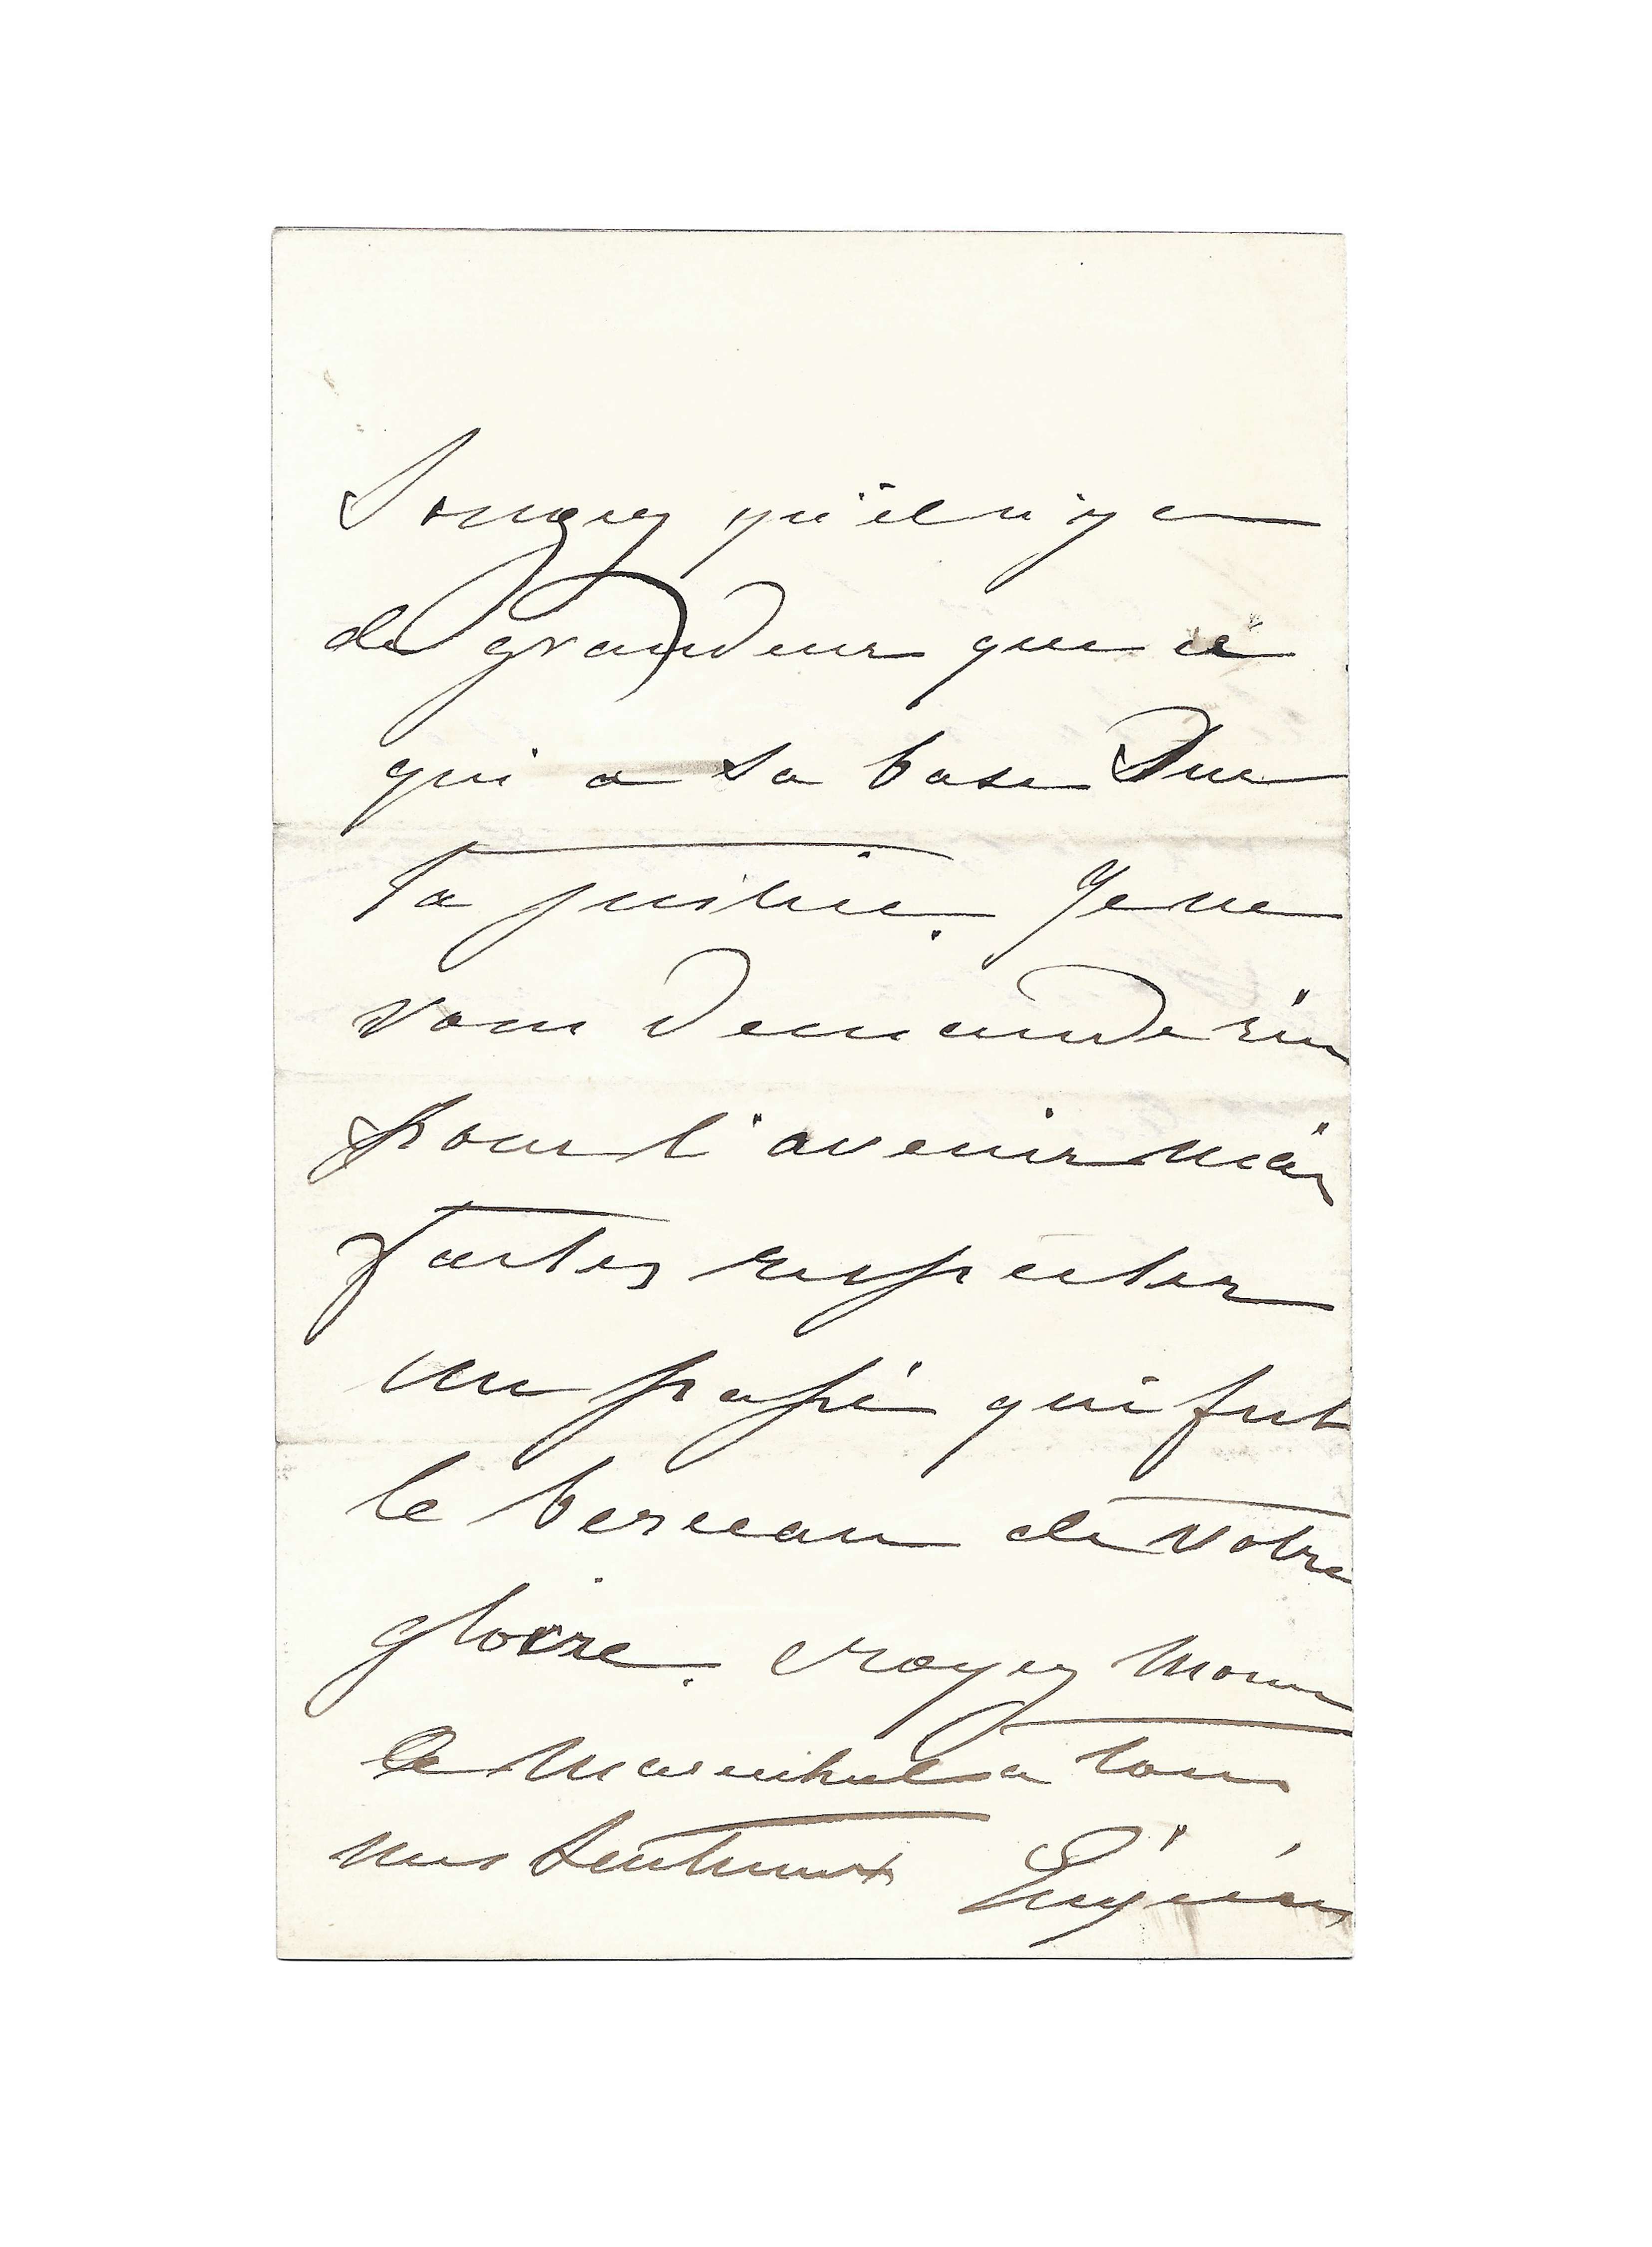 Songez qu'il n'y a
de grandeur que ce
qui a sa base sur
la justice. Je ne
vous demande rien
pour l'avenir mais
faites respecter
un passé qui fut
le berceau de votre
gloire. Croyez
le Marechal a tous
mes sentiments Eugénie